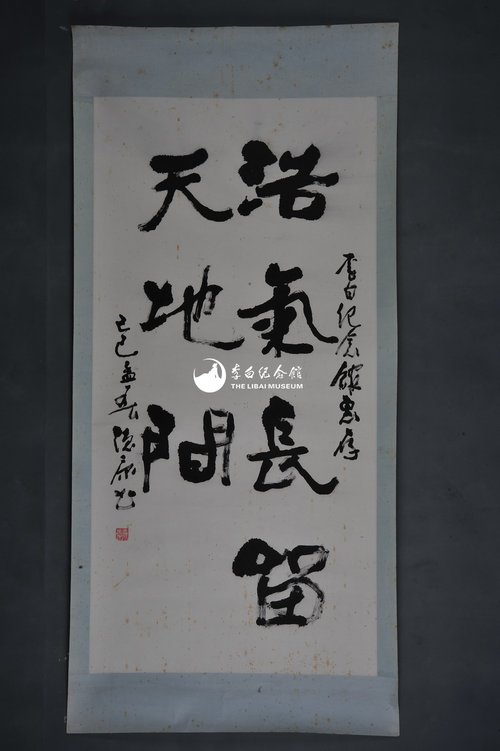 李白纪念館惠存
浩氣長留
天地間
己巳孟春
李白纪念館
THE LIBAI MUSEUM